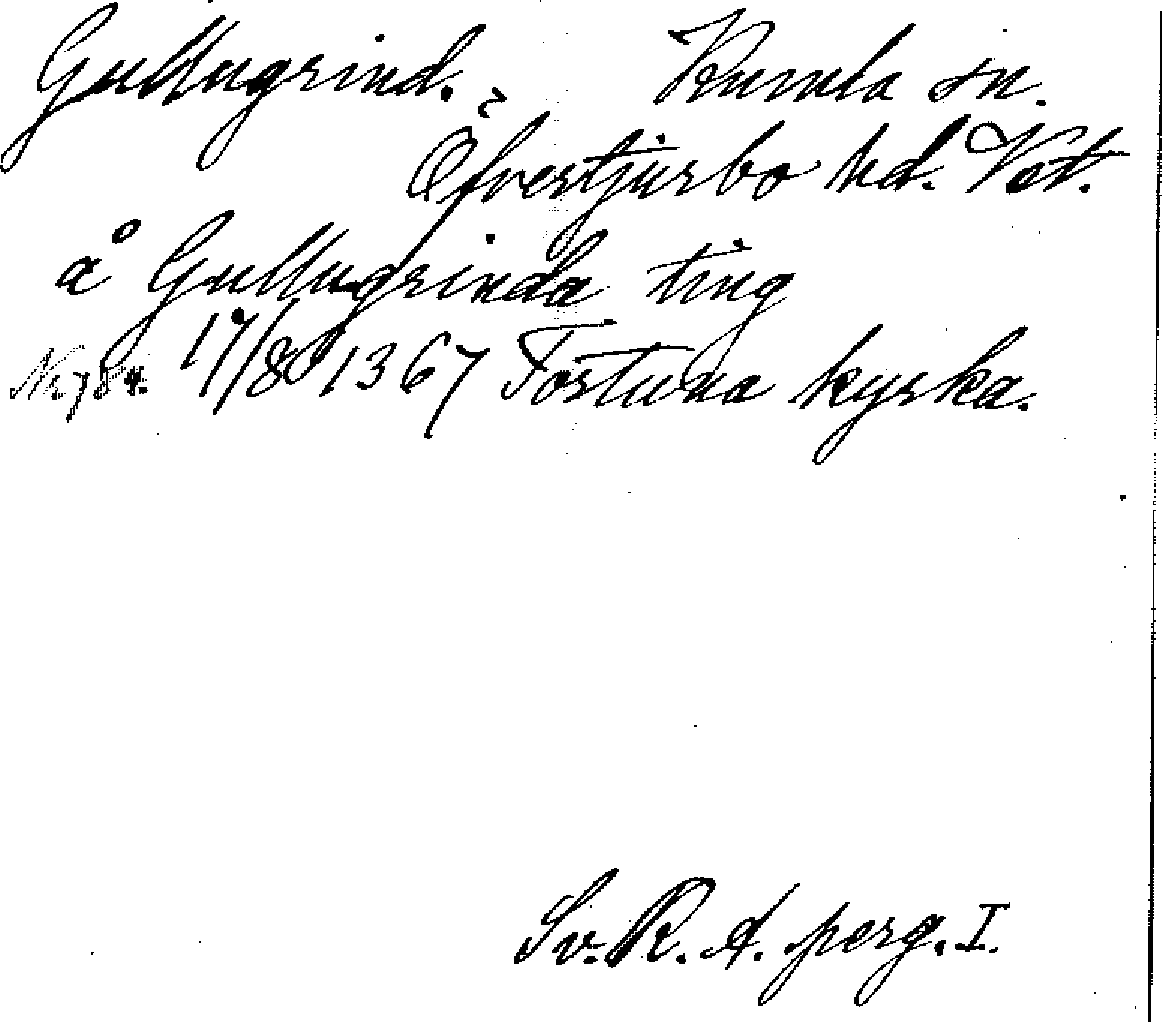 Gullugrind. Kumla sn.
Öfvertjurbo hd. Vst.
å Gullugrinda ting
Nr 784. 17/8 1367 Tortuna kyrka.
Sv. R. A. perg. I.